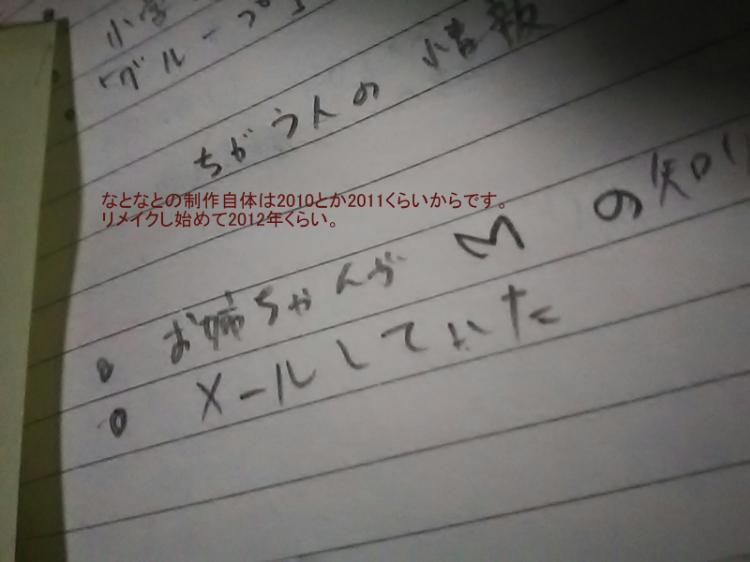 小学
「グループ
ちがう人の 情報
なとなとの制作自体は2010とか2011くらいからです。
リメイクし始めて2012年くらい。
お姉ちゃんが Mの知り
メールしていた